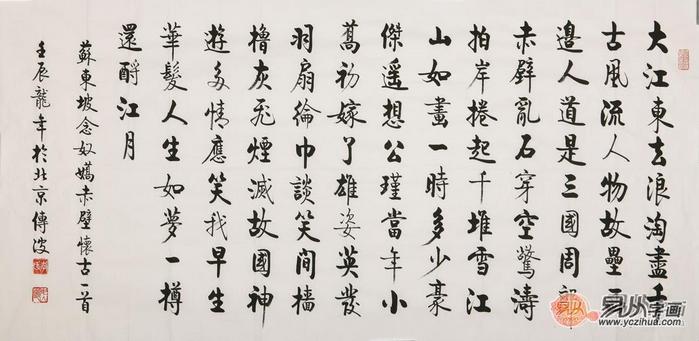 大江東去浪淘盡千
古風流人物故壘西
邊人道是三國周郎
赤壁亂石穿空驚濤
拍岸捲起千堆雪江
山如畫一時多少豪
傑遥想公瑾當年小
喬初嫁了雄姿英發
羽扇綸巾談笑間檣
櫓灰飛煙滅故國神
遊多情應笑我早生
華髮人生如夢一樽
還酹江月
蘇東坡念奴嬌赤壁懷古一首
壬辰龍年於北京傳波
易州字画
www.yczihua.com